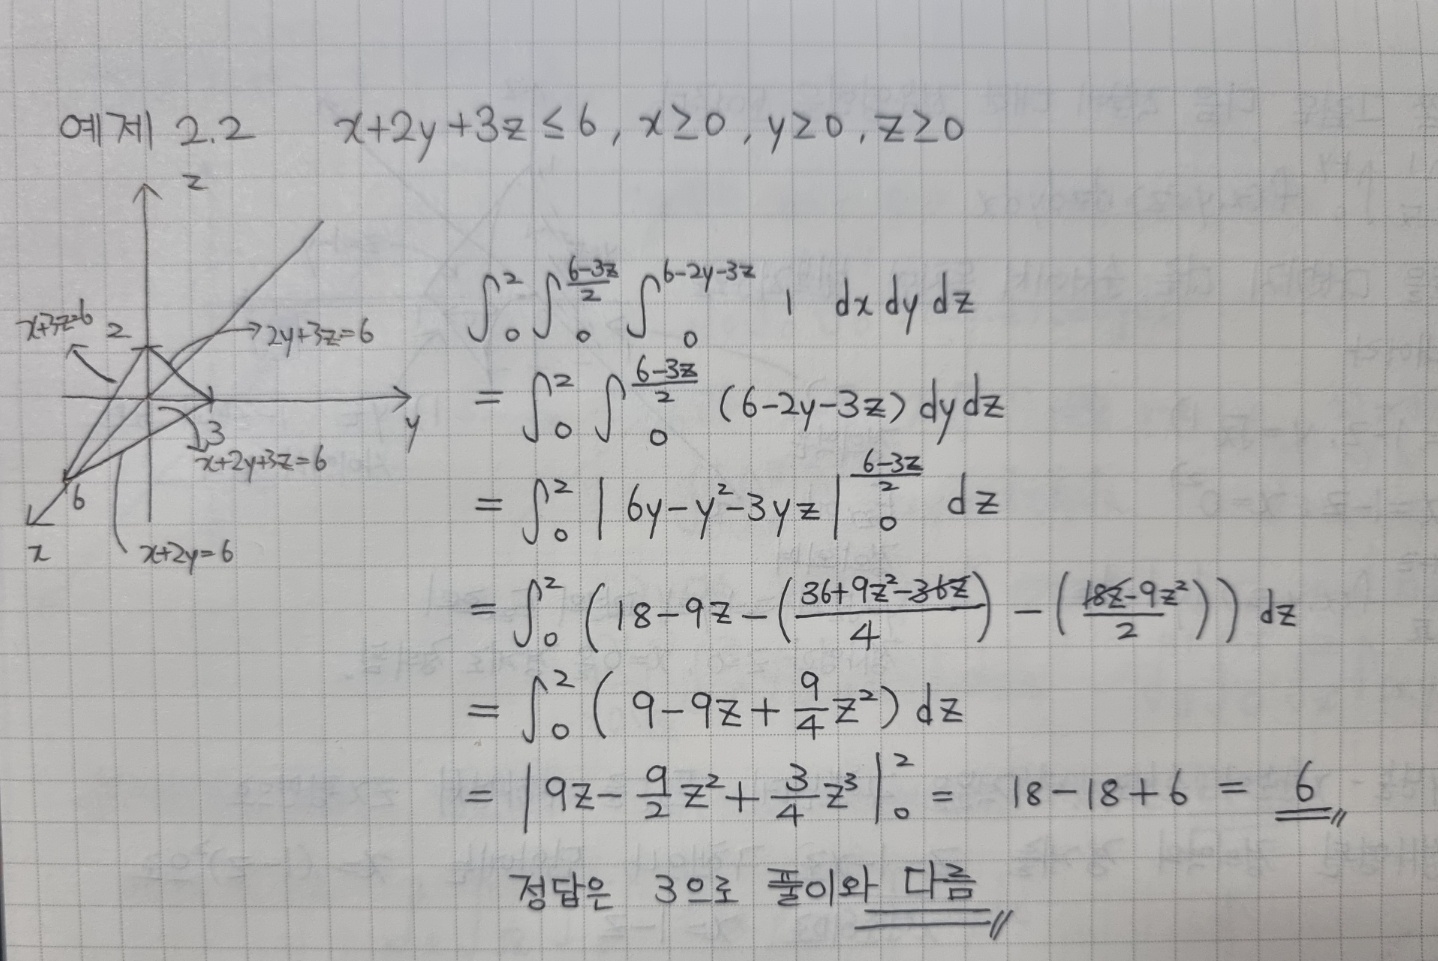 예제 2.2 x+2y+3z≤6, x≥0, y≥0, z≥0
z
x+3z=6
2
2y+3z=6
y
3
x+2y+3z=6
6
x
x+2y=6
∫₀² ∫₀^((6-3z)/2) ∫₀^(6-2y-3z) 1 dx dy dz
= ∫₀² ∫₀^((6-3z)/2) (6-2y-3z) dy dz
= ∫₀² | 6y-y²-3yz |₀^((6-3z)/2) dz
= ∫₀² (18-9z-((36+9z²-36z)/4)-((18z-9z²)/2)) dz
= ∫₀² (9-9z+9/4 z²) dz
= | 9z-9/2 z²+3/4 z³ |₀² = 18-18+6 = 6
정답은 3으로 풀이와 다름